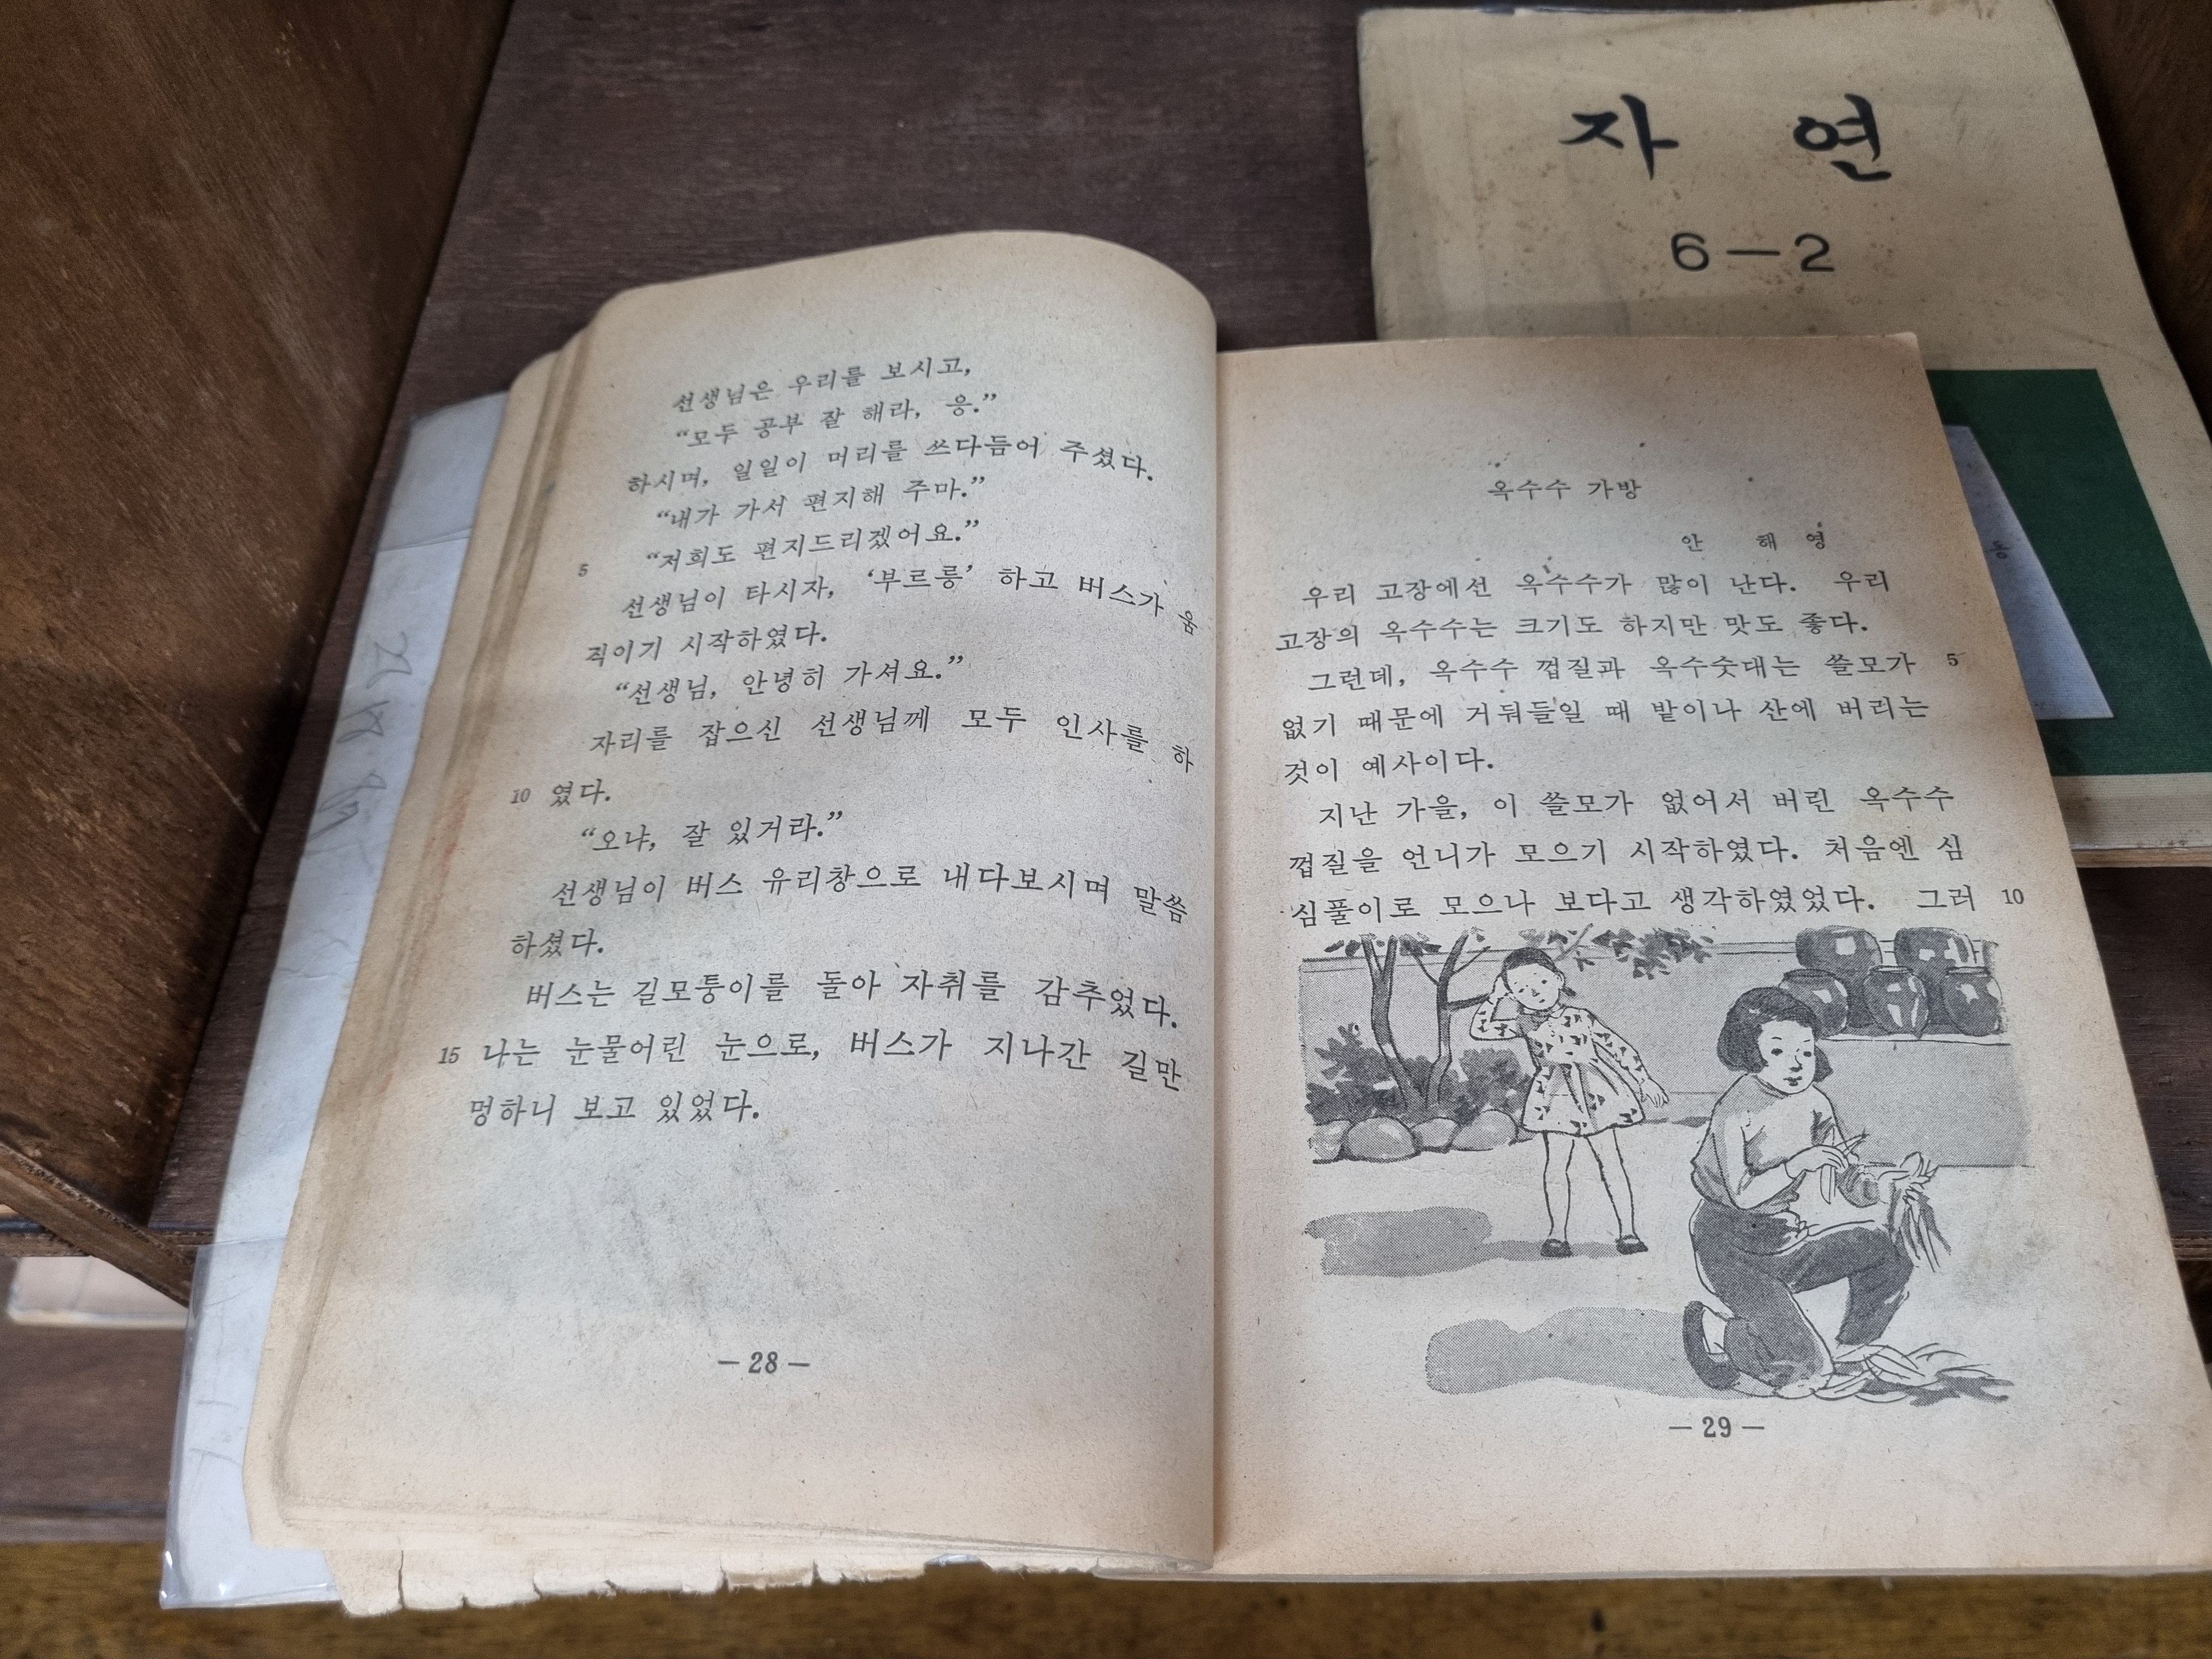 자 연
6-2
선생님은 우리를 보시고,
“모두 공부 잘 해라, 응.”
하시며, 일일이 머리를 쓰다듬어 주셨다.
“내가 가서 편지해 주마.”
5 “저희도 편지드리겠어요.”
선생님이 타시자, ‘부르릉’ 하고 버스가 움
직이기 시작하였다.
“선생님, 안녕히 가셔요.”
자리를 잡으신 선생님께 모두 인사를 하
10 였다.
“오냐, 잘 있거라.”
선생님이 버스 유리창으로 내다보시며 말씀
하셨다.
버스는 길모퉁이를 돌아 자취를 감추었다.
15 나는 눈물어린 눈으로, 버스가 지나간 길만
멍하니 보고 있었다.
-28-
옥수수 가방
안 해 영
우리 고장에선 옥수수가 많이 난다. 우리
고장의 옥수수는 크기도 하지만 맛도 좋다.
그런데, 옥수수 껍질과 옥수숫대는 쓸모가 5
없기 때문에 거둬들일 때 밭이나 산에 버리는
것이 예사이다.
지난 가을, 이 쓸모가 없어서 버린 옥수수
껍질을 언니가 모으기 시작하였다. 처음엔 심
심풀이로 모으나 보다고 생각하였었다. 그러 10
-29-